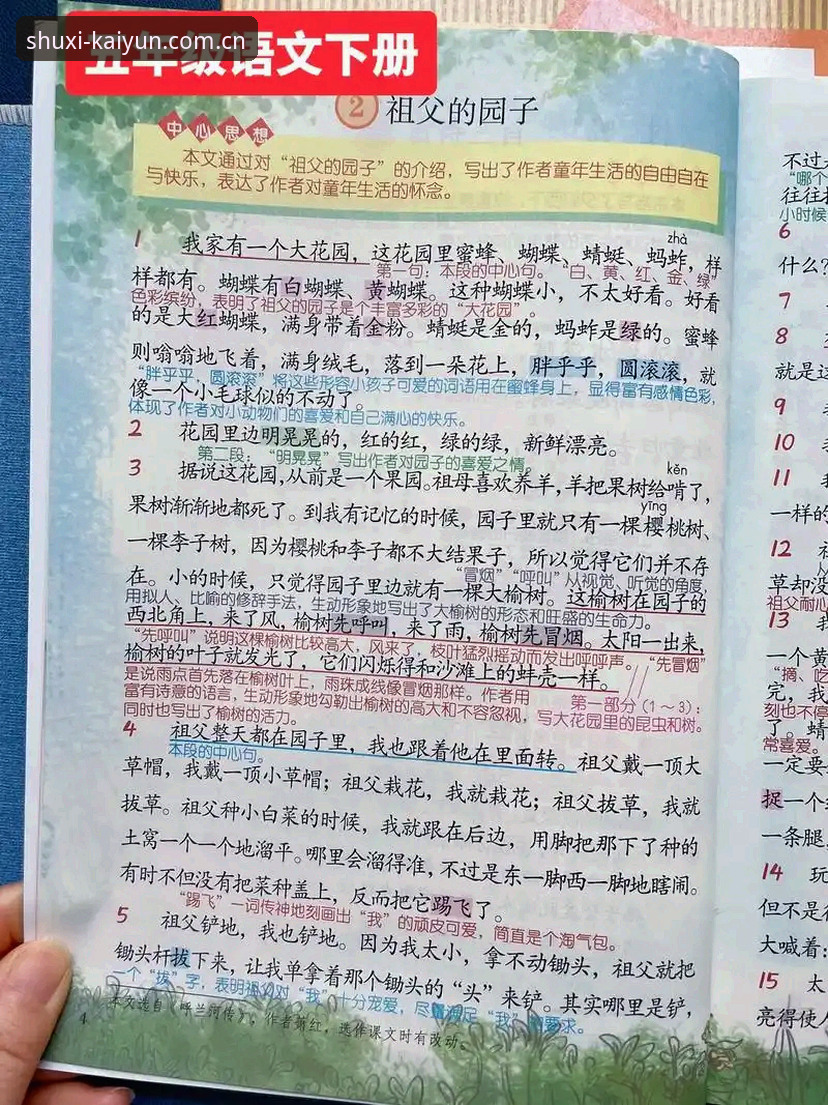 shuxi-kaiyun.com.cn
五年级语文下册
2 祖父的园子
中心思想
本文通过对“祖父的园子”的介绍，写出了作者童年生活的自由自在
与快乐，表达了作者对童年生活的怀念。
zhà
1 我家有一个大花园，这花园里蜜蜂、蝴蝶、蜻蜓、蚂蚱，样
第一句：本段的中心句。“白、黄、红、金、绿”
样都有。蝴蝶有白蝴蝶、黄蝴蝶。这种蝴蝶小，不太好看。好看
色彩缤纷，表明了祖父的园子是个丰富多彩的“大花园”。
的是大红蝴蝶，满身带着金粉。蜻蜓是金的，蚂蚱是绿的。蜜蜂
则嗡嗡地飞着，满身绒毛，落到一朵花上，胖乎乎，圆滚滚，就
“胖乎乎，圆滚滚”将这些形容小孩子可爱的词语用在蜜蜂身上，显得富有感情色彩，
像一个小毛球似的不动了。
体现了作者对小动物们的喜爱和自己满心的快乐。
2 花园里边明晃晃的，红的红，绿的绿，新鲜漂亮。
第二段：“明晃晃”写出作者对园子的喜爱之情。
kěn
3 据说这花园，从前是一个果园。祖母喜欢养羊，羊把果树给啃了，
果树渐渐地都死了。到我有记忆的时候，园子里就只有一棵樱桃树、
yīng
一棵李子树，因为樱桃和李子都不大结果子，所以觉得它们并不存
“冒烟”“呼叫”从视觉、听觉的角度，
在。小的时候，只觉得园子里边就有一棵大榆树。这榆树在园子的
用拟人、比喻的修辞手法，生动形象地写出了大榆树的形态和旺盛的生命力。
西北角上，来了风，榆树先呼叫，来了雨，榆树先冒烟。太阳一出来，
“先呼叫”说明这棵榆树比较高大，风来了，枝叶猛烈摇动而发出呼呼声。“先冒烟”
榆树的叶子就发光了，它们闪烁得和沙滩上的蚌壳一样。
是说雨点首先落在榆树叶上，雨珠成线像冒烟那样。作者用
富有诗意的语言，生动形象地勾勒出榆树的高大和不容忽视，
同时也写出了榆树的活力。
第一部分（1～3）：
写大花园里的昆虫和树。
4 祖父整天都在园子里，我也跟着他在里面转。祖父戴一顶大
本段的中心句。
草帽，我戴一顶小草帽；祖父栽花，我就栽花；祖父拔草，我就
拔草。祖父种小白菜的时候，我就跟在后边，用脚把那下了种的
土窝一个一个地溜平。哪里会溜得准，不过是东一脚西一脚地瞎闹。
有时不但没有把菜种盖上，反而把它踢飞了。
“踢飞”一词传神地刻画出“我”的顽皮可爱，简直是个淘气包。
5 祖父铲地，我也铲地。因为我太小，拿不动锄头，祖父就把
锄头杆拔下来，让我单拿着那个锄头的“头”来铲。其实哪里是铲，
一个“拔”字，表明祖父对“我”十分宠爱，尽量满足“我”的要求。
本文选自《呼兰河传》，作者萧红，选作课文时有改动。
4
不过
“哪个
往往
小时候
6
什么？
7
8
就是这
9
10
11
一样的
12
草却没
祖父耐心
13
一个黄
“摘、吃
完，我
刻也不停
了。蜻
常喜爱。
一定要
捉一个
一条腿，
14 玩
但不是
大喊着：
15 太
亮得使人